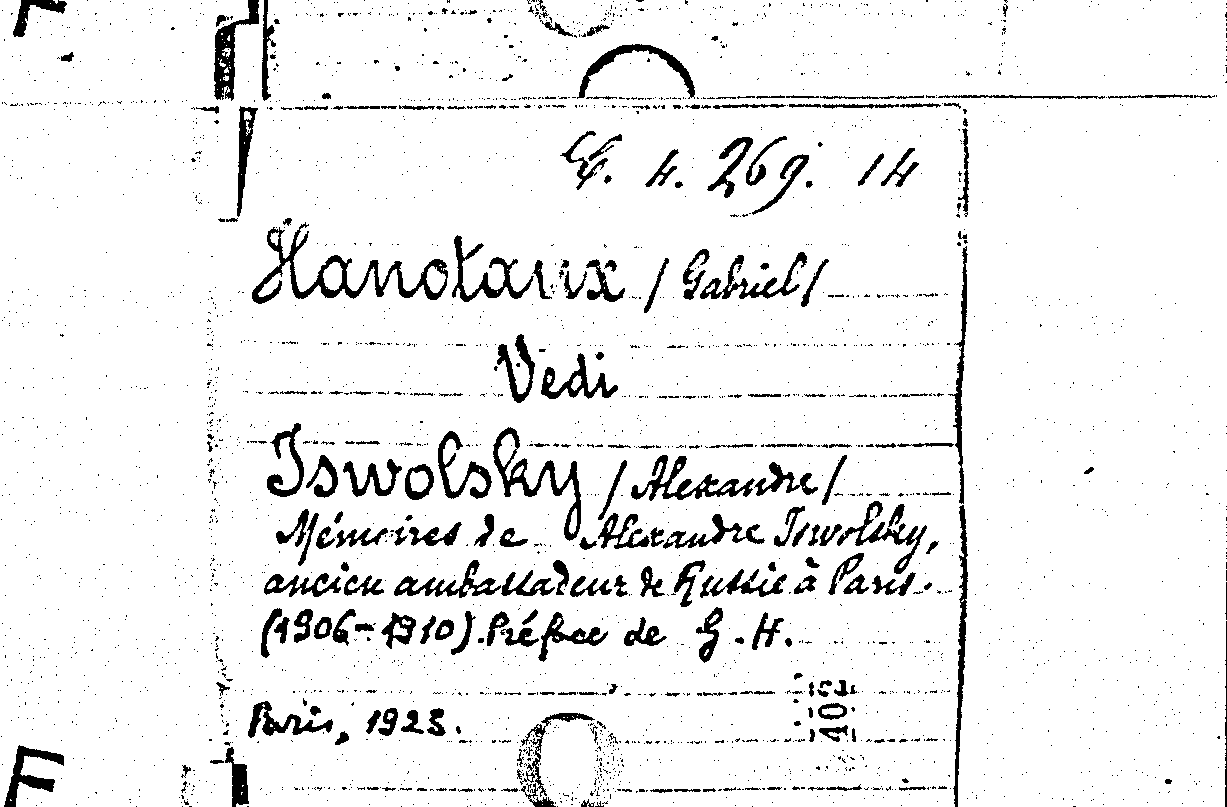 F
4. 269. 14
Hanotaux / Gabriel /
Vedi
Iswolsky / Alexandre /
Mémoires de Alexandre Iswolsky,
ancien ambassadeur de Russie à Paris.
(1906-1910). Préface de G. H.
Paris, 1923.
F